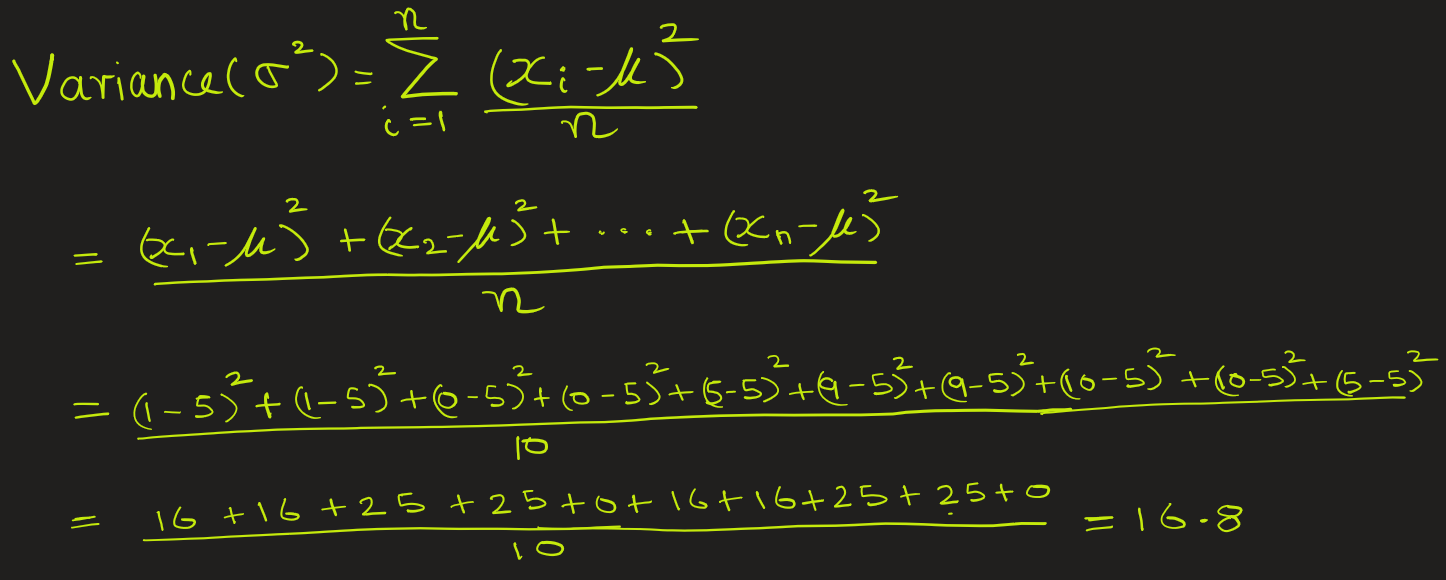 Variance(σ²) = Σᵢ₌₁ⁿ (xᵢ - μ)² / n
= (x₁ - μ)² + (x₂ - μ)² + ... + (xₙ - μ)² / n
= (1 - 5)² + (1 - 5)² + (0 - 5)² + (0 - 5)² + (5 - 5)² + (9 - 5)² + (9 - 5)² + (10 - 5)² + (10 - 5)² + (5 - 5)² / 10
= 16 + 16 + 25 + 25 + 0 + 16 + 16 + 25 + 25 + 0 / 10 = 16.8